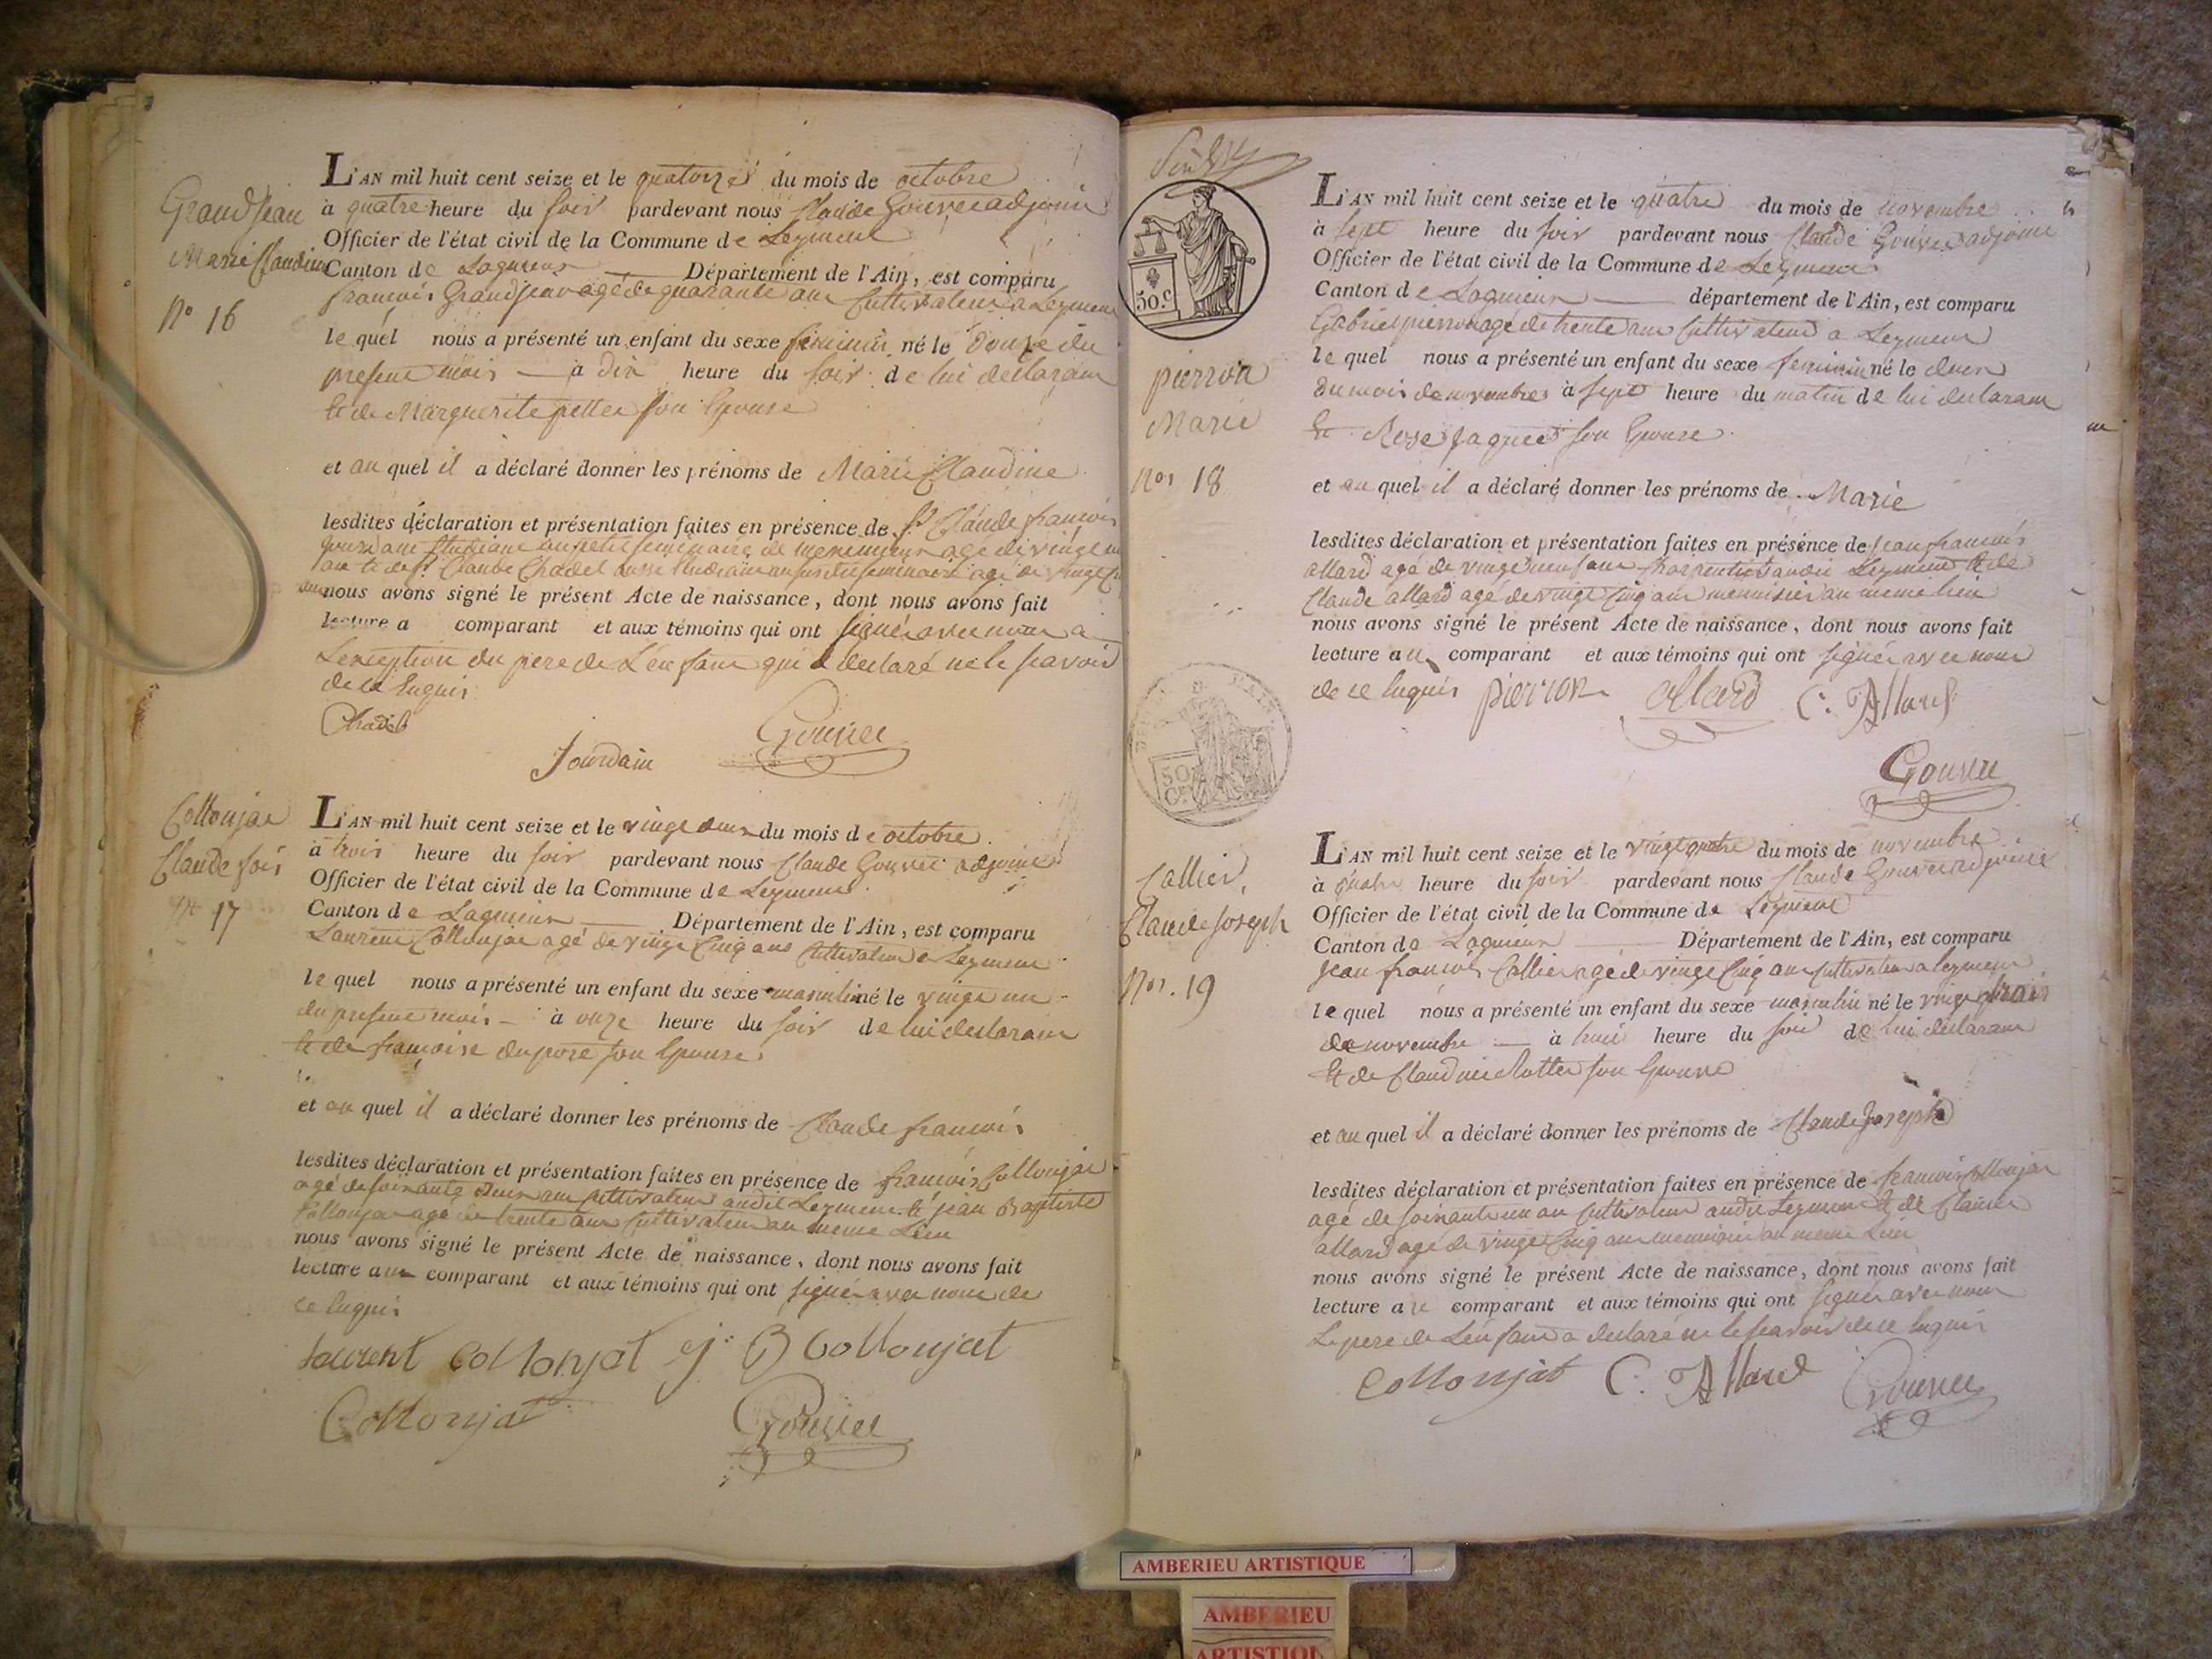 Grandjean
Marie Claudine
N° 16
L'AN mil huit cent seize et le quatorze du mois de octobre
à quatre heure du soir pardevant nous Claude Gouvee adjoint
Officier de l'état civil de la Commune de Leyment
Canton de Lagnieux Département de l'Ain, est comparu
francois Grandjean agé de quarante ans Cultivateur a Leyment
le quel nous a présenté un enfant du sexe feminin né le douze du
present mois à dix heure du soir de lui declarant
et de Marguerite pettet son Epouse
et au quel il a déclaré donner les prénoms de Marie Claudine
lesdites déclaration et présentation faites en présence de Sr Claude francois
agé de vingt
et de Sr Claude Chadel aussi agé de vingt
ans nous avons signé le présent Acte de naissance, dont nous avons fait
lecture a comparant et aux témoins qui ont signé avec nous a
Lexception du pere de L'enfant qui a declaré ne le scavoir
de ce Enquis
Chadel
Jourdain Gouvee
Collonjat
Claude fois
N° 17
L'AN mil huit cent seize et le vingt deux du mois de octobre
à trois heure du soir pardevant nous Claude Gouvee adjoint
Officier de l'état civil de la Commune de Leyment
Canton de Lagnieux Département de l'Ain, est comparu
Laurent Collonjat agé de vingt Cinq ans Cultivateur a Leyment
le quel nous a présenté un enfant du sexe masculin né le vingt un
du present mois à onze heure du soir de lui declarant
et de francoise dupore son Epouse
et au quel il a déclaré donner les prénoms de Claude francois
lesdites déclaration et présentation faites en présence de francois Collonjat
agé de soixante deux ans Cultivateur audit Leyment et jean Baptiste
Collonjat agé de trente ans Cultivateur au meme Lieu
nous avons signé le présent Acte de naissance, dont nous avons fait
lecture au comparant et aux témoins qui ont signé avec nous de
ce Enquis
Laurent Collonjat j. B Collonjat
Collonjat Gouvee
50 c
pierron
Marie
Nos 18
L'AN mil huit cent seize et le quatre du mois de novembre
à sept heure du soir pardevant nous Claude Gouvee adjoint
Officier de l'état civil de la Commune de Leyment
Canton de Lagnieux département de l'Ain, est comparu
Gabriel pierron agé de trente ans Cultivateur a Leyment
le quel nous a présenté un enfant du sexe feminin né le deux
du mois de novembre à sept heure du matin de lui declarant
et Rose Jaquet son Epouse
et au quel il a déclaré donner les prénoms de Marie
lesdites déclaration et présentation faites en présence de jean francois
allard agé de vingt neuf ans charpentier audit Leyment et de
Claude allard agé de vingt Cinq ans menuisier au meme lieu
nous avons signé le présent Acte de naissance, dont nous avons fait
lecture au comparant et aux témoins qui ont signé avec nous
de ce Enquis pierron allard C. Allard
Gouvee
50
C.
Callier
Claude Joseph
Nos. 19
L'AN mil huit cent seize et le vingt quatre du mois de novembre
à quatre heure du soir pardevant nous Claude Gouvee adjoint
Officier de l'état civil de la Commune de Leyment
Canton de Lagnieux Département de l'Ain, est comparu
jean francois Callier agé de vingt Cinq ans Cultivateur a leyment
le quel nous a présenté un enfant du sexe masculin né le vingt trois
de novembre à huit heure du soir de lui declarant
Et de Claudine Rottet son Epouse
et au quel il a déclaré donner les prénoms de Claude Joseph
lesdites déclaration et présentation faites en présence de francois Collonjat
agé de soixante un an Cultivateur audit Leyment et de Claude
allard agé de vingt Cinq ans menuisier au meme Lieu
nous avons signé le présent Acte de naissance, dont nous avons fait
lecture a ce comparant et aux témoins qui ont signé avec nous
Le pere de L'enfant a declaré ne le scavoir de ce Enquis
Collonjat C. Allard Gouvee
AMBERIEU ARTISTIQUE
AMBERIEU
ARTISTIQU